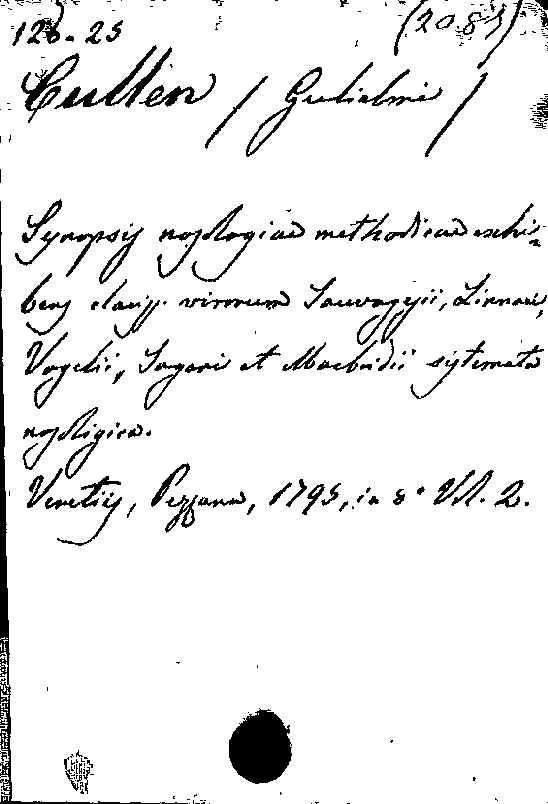 126-25 (2085)
Cullen / Gulielmi /
Synopsis nosologiae methodicae exhi-
bens clariss. virorum Sauvagesii, Linnaei,
Vogelii, Sagari et Macbridii systemata
nosologica.
Venetiis, Pezzana, 1795, in 8° Vol. 2.